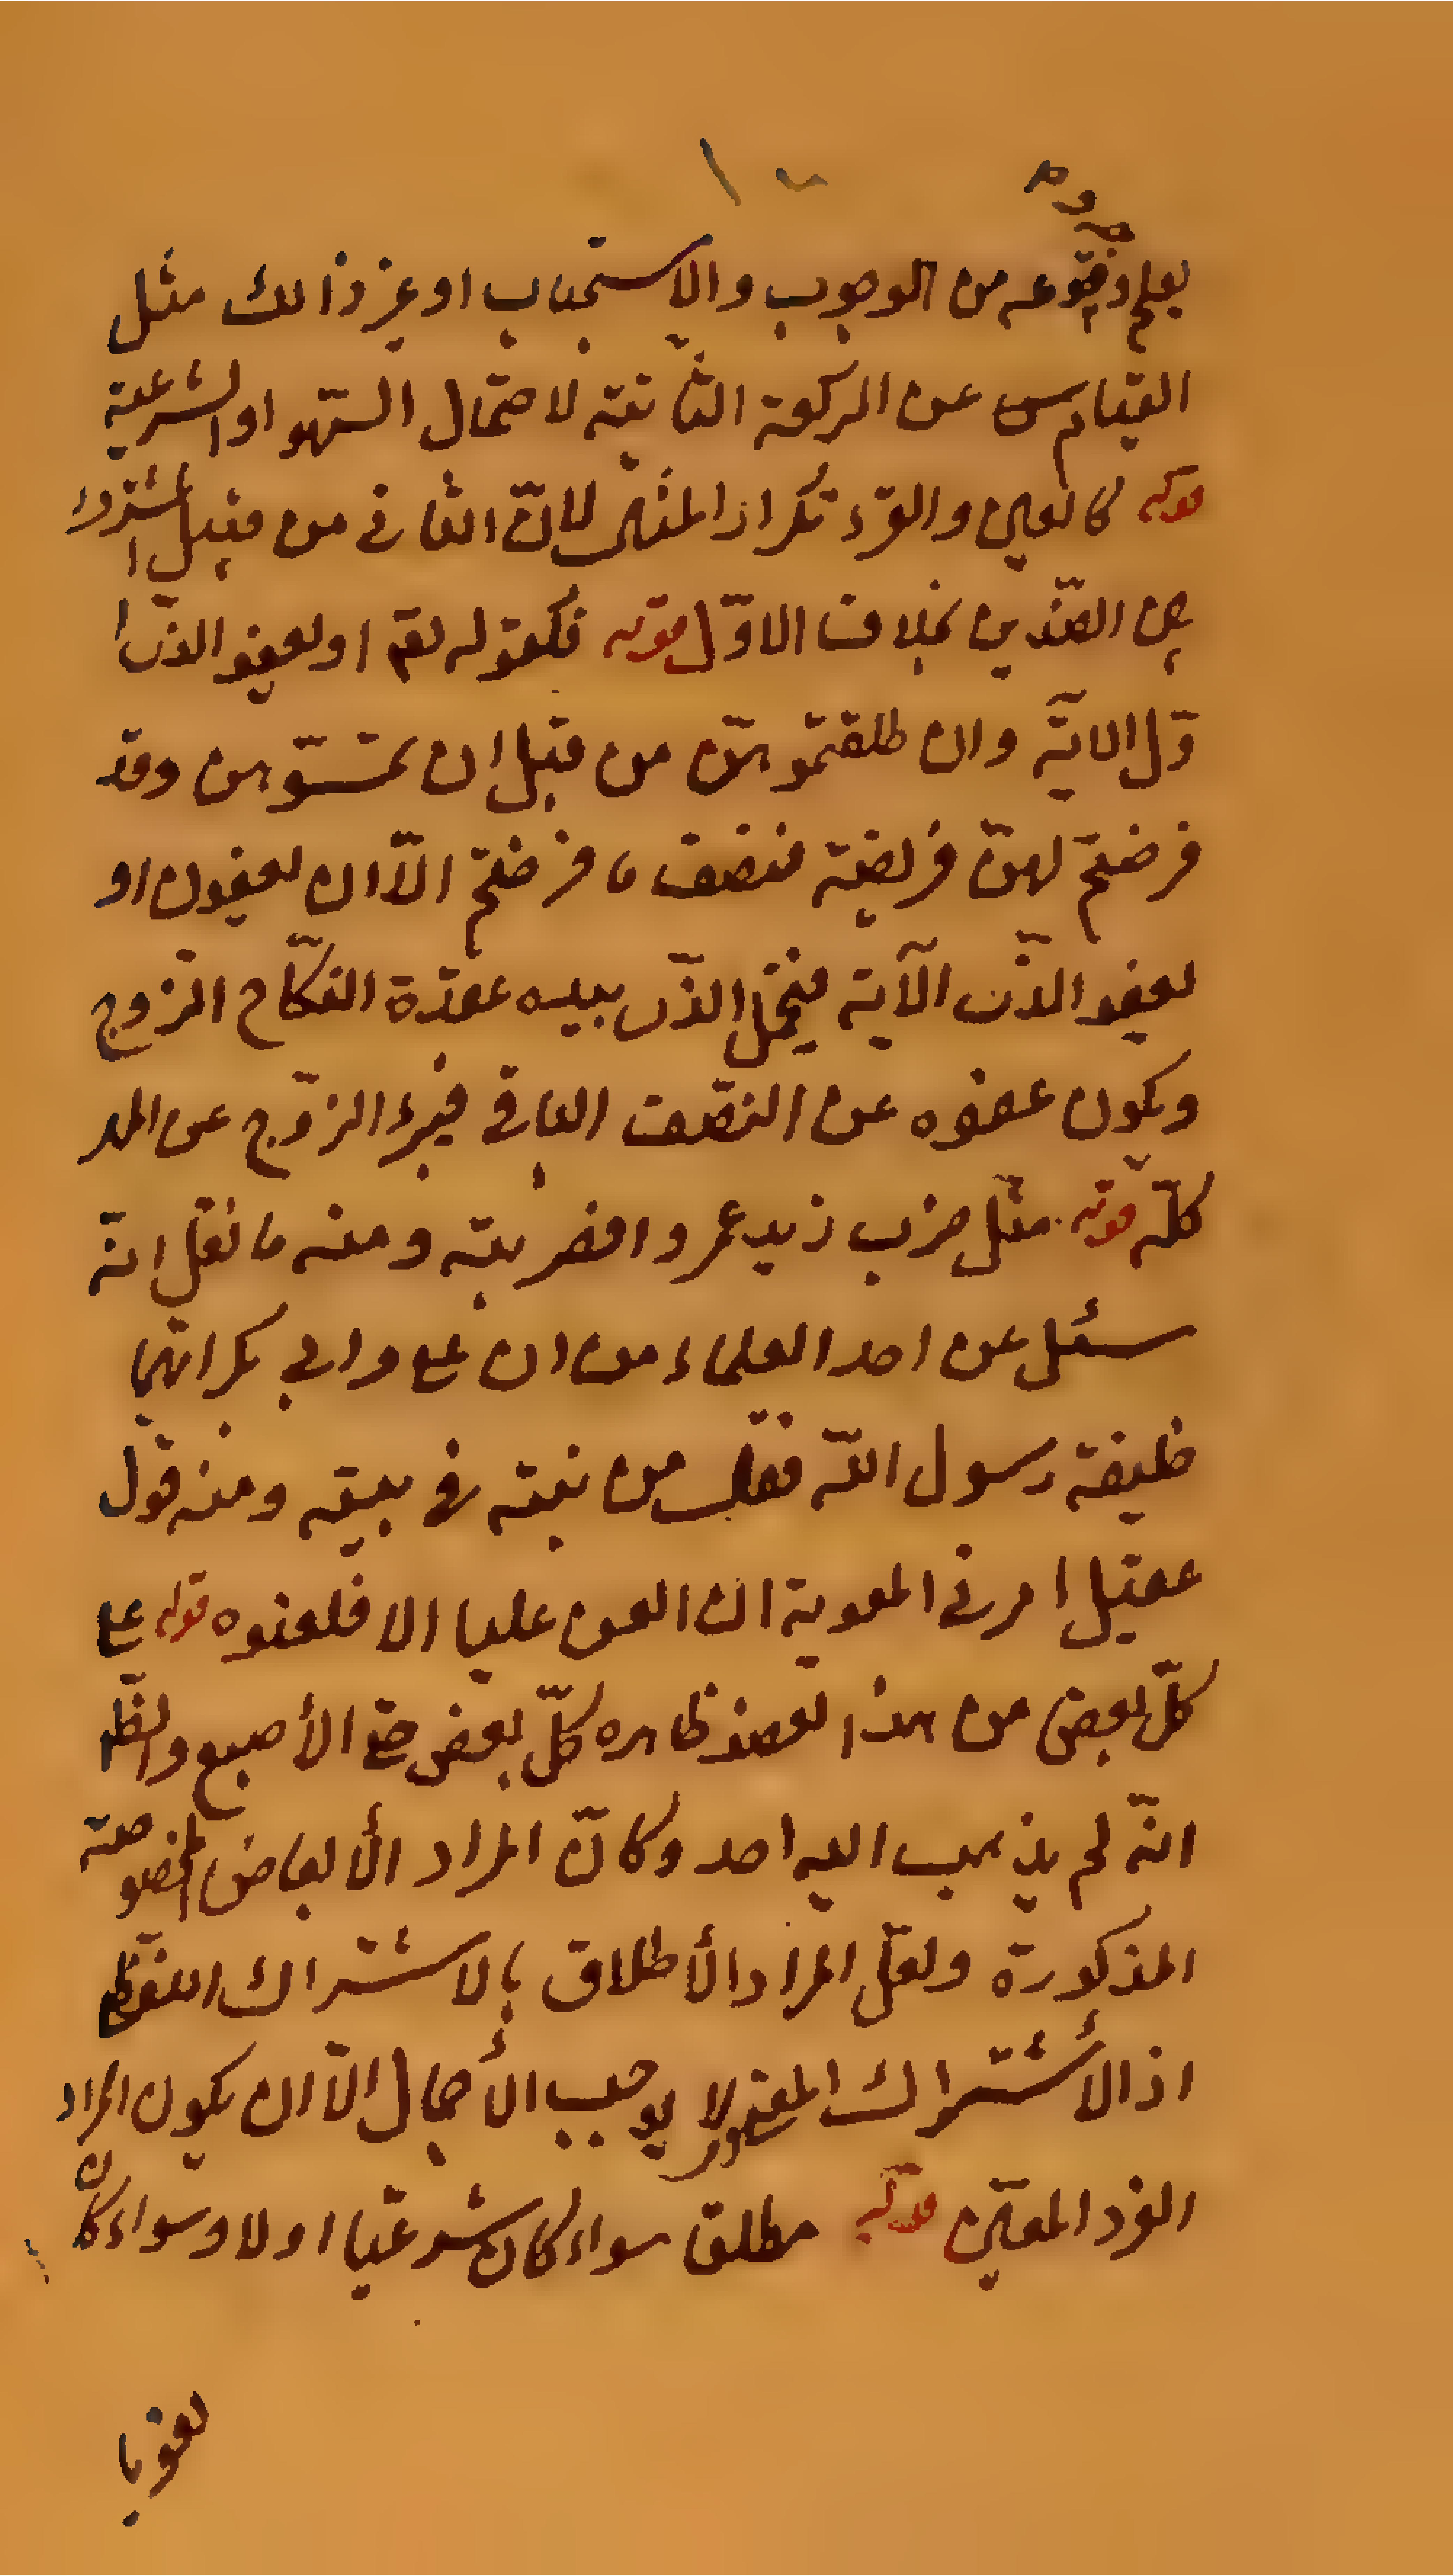 يعلم وقوعه من الوجوب والاستحباب او غير ذالك مثل
القيام عن الركعة الثانية لاحتمال السّهو او الشرعية
قوله كالعين والقرء تكرار المثال لانّ الثانى من قبيل المشترك
بين الضّدين بخلاف الاوّل قوله فكقوله تعم او يعفو الذى ا
وّل الاية وان طلقتموهنّ من قبل ان تمسّوهن وقد
فرضتم لهنّ فريضة فنصف ما فرضتم الّا ان يعفون او
يعفو الذّى الآية فيحتمل الذّى بيده عقدة النكّاح الزّوج
ويكون عفوه عن النصّف الباقى فيبرء الزوّج عن المهر
كلّه قوله مثل ضرب زيد عمروا فضربته ومنه ما نقل انّه
سئل عن احد العلماء من ان على وابى بكر ايّهما
خليفة رسول اللّه فقال من بنته فى بيته ومنه قول
عقيل امرنى المعوية ان العن عليا الا فلعنوه قوله على
كلّ بعض من هذا العضو ظاهره كلّ بعض حتى الأصبع والظّ
انّه لم يذهب اليه احد وكانّ المراد الأبعاض المخصوصة
المذكورة ولعلّ المراد الأطلاق بالاشتراك اللفّظى
اذ الأشتراك المعنوى لا يوجب الأجمال الّا ان يكون المراد
الفرد المعيّن قوله مطلق سواء كان شرعيّا اولا وسواء كان
لغويا